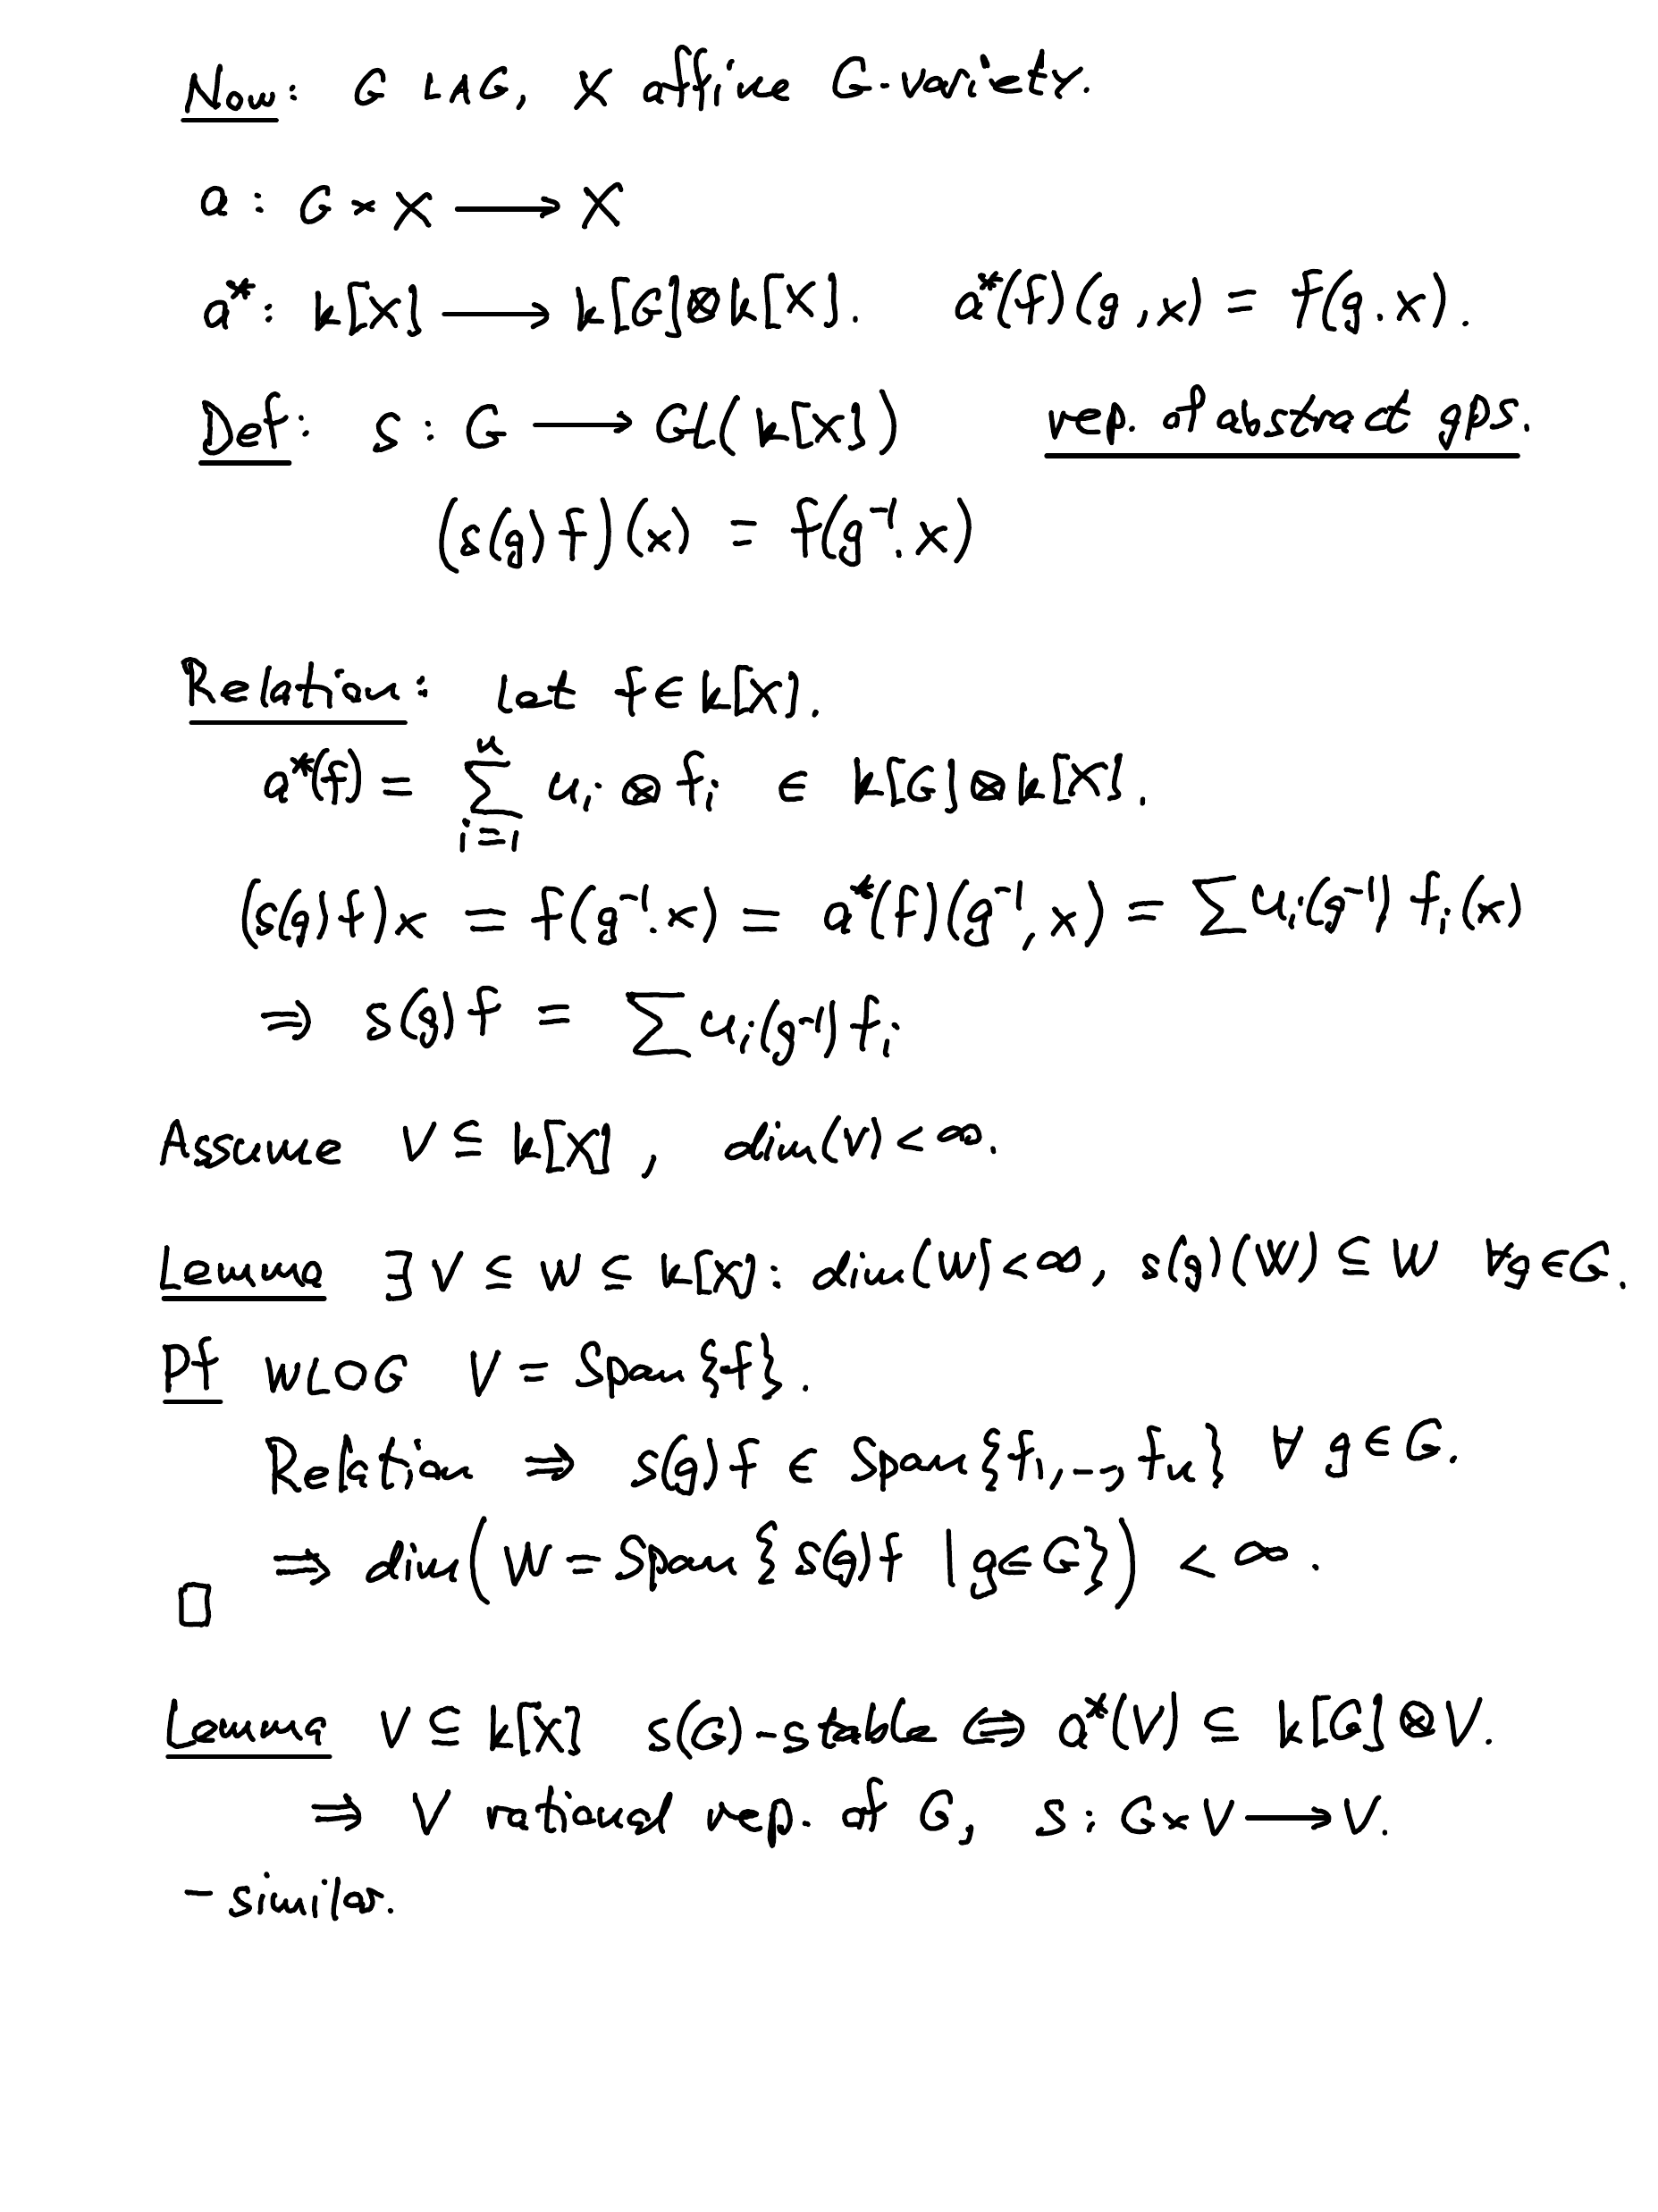 Now: G LAG, X affine G-variety.
a : G × X ⟶ X
a*: k[X] ⟶ k[G]⊗k[X]. a*(f)(g,x) = f(g.x).
Def: s : G ⟶ GL(k[X]) rep. of abstract gps.
(s(g)f)(x) = f(g⁻¹.x)
Relation: Let f ∈ k[X].
a*(f) = ∑_{i=1}^{n} u_i ⊗ f_i ∈ k[G]⊗k[X].
(s(g)f)x = f(g⁻¹.x) = a*(f)(g⁻¹,x) = ∑ u_i(g⁻¹) f_i(x)
⇒ s(g)f = ∑ u_i(g⁻¹) f_i
Assume V ⊆ k[X], dim(V) < ∞.
Lemma ∃ V ⊆ W ⊆ k[X]: dim(W) < ∞, s(g)(W) ⊆ W ∀g∈G.
Pf WLOG V = Span{f}.
Relation ⇒ s(g)f ∈ Span{f_1,--,f_n} ∀ g∈G.
⇒ dim(W = Span{s(g)f | g∈G}) < ∞.
□
Lemma V ⊆ k[X] s(G)-stable ⇔ a*(V) ⊆ k[G]⊗V.
⇒ V rational rep. of G, s : G×V ⟶ V.
- similar.